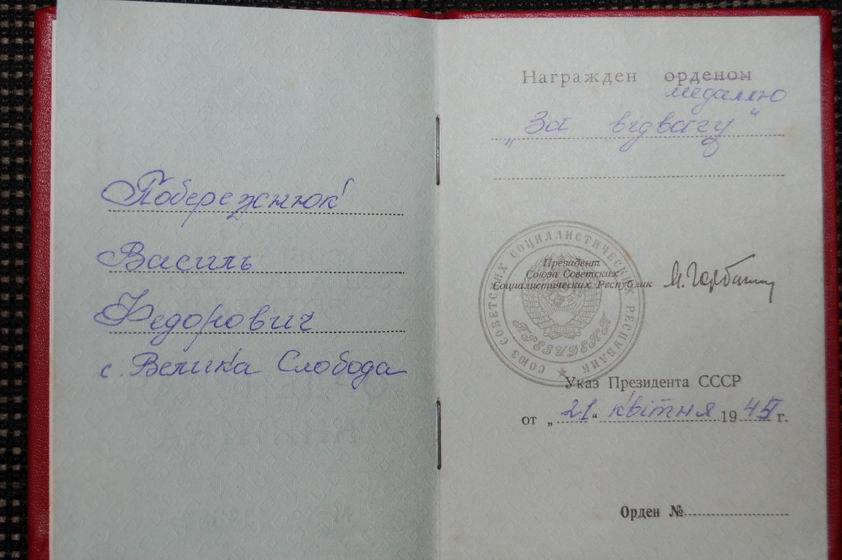 Побережнюк
Василь
Федорович
с. Велика Слобода
Награжден орденом
медаллю
„За відвагу"
СОЮЗ СОВЕТСКИХ СОЦИАЛИСТИЧЕСКИХ РЕСПУБЛИК
ПРЕЗИДЕНТ
Президент
Союза Советских
Социалистических Республик
М. Горбачев
Указ Президента СССР
от „21" квітня 1945 г.
Орден №